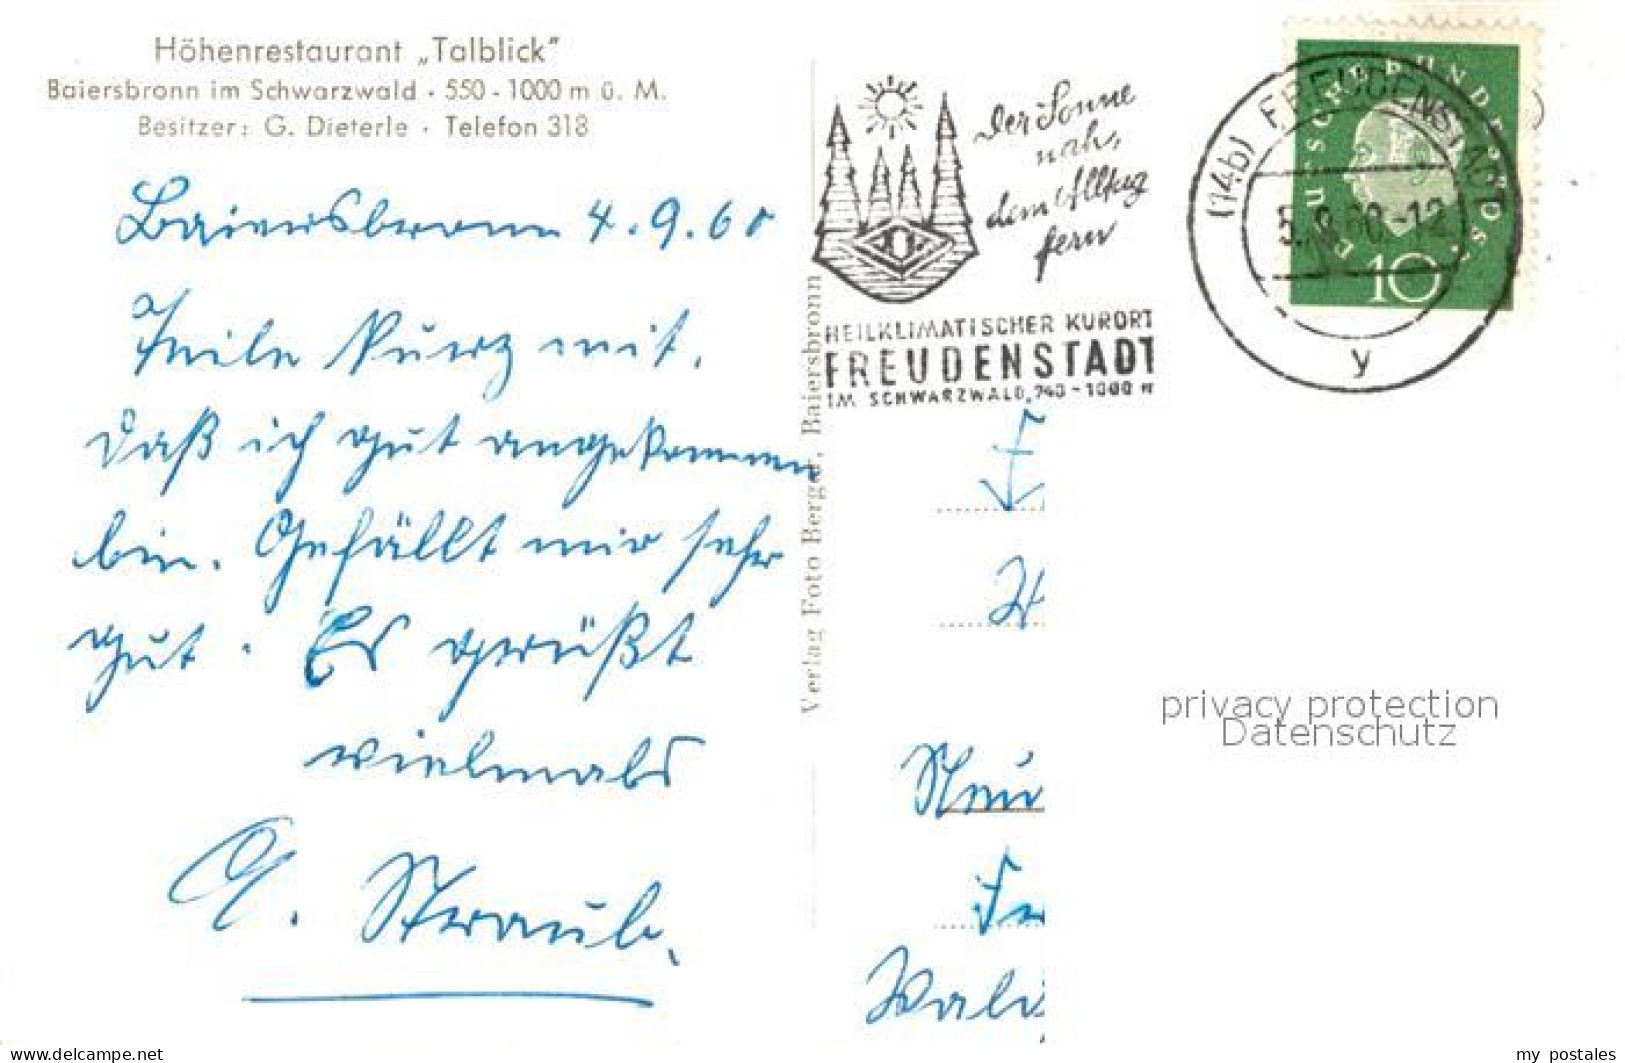 Höhenrestaurant „Talblick"
Baiersbronn im Schwarzwald · 550 - 1000 m ü. M.
Besitzer: G. Dieterle · Telefon 318
Baiersbronn 4.9.60
Teile Kurz mit,
daß ich gut angekommen
bin. Gefällt mir sehr
gut. Es grüßt
vielmals
G. Straub.
Verlag Foto Berger, Baiersbronn
Der Sonne
nah,
dem Alltag
fern
HEILKLIMATISCHER KURORT
FREUDENSTADT
IM SCHWARZWALD, 740-1000 m
(14b) FREUDENSTADT
5.9.60.-12
y
DEUTSCHE BUNDESPOST
10
Neu
privacy protection
Datenschutz
www.delcampe.net
my_postales